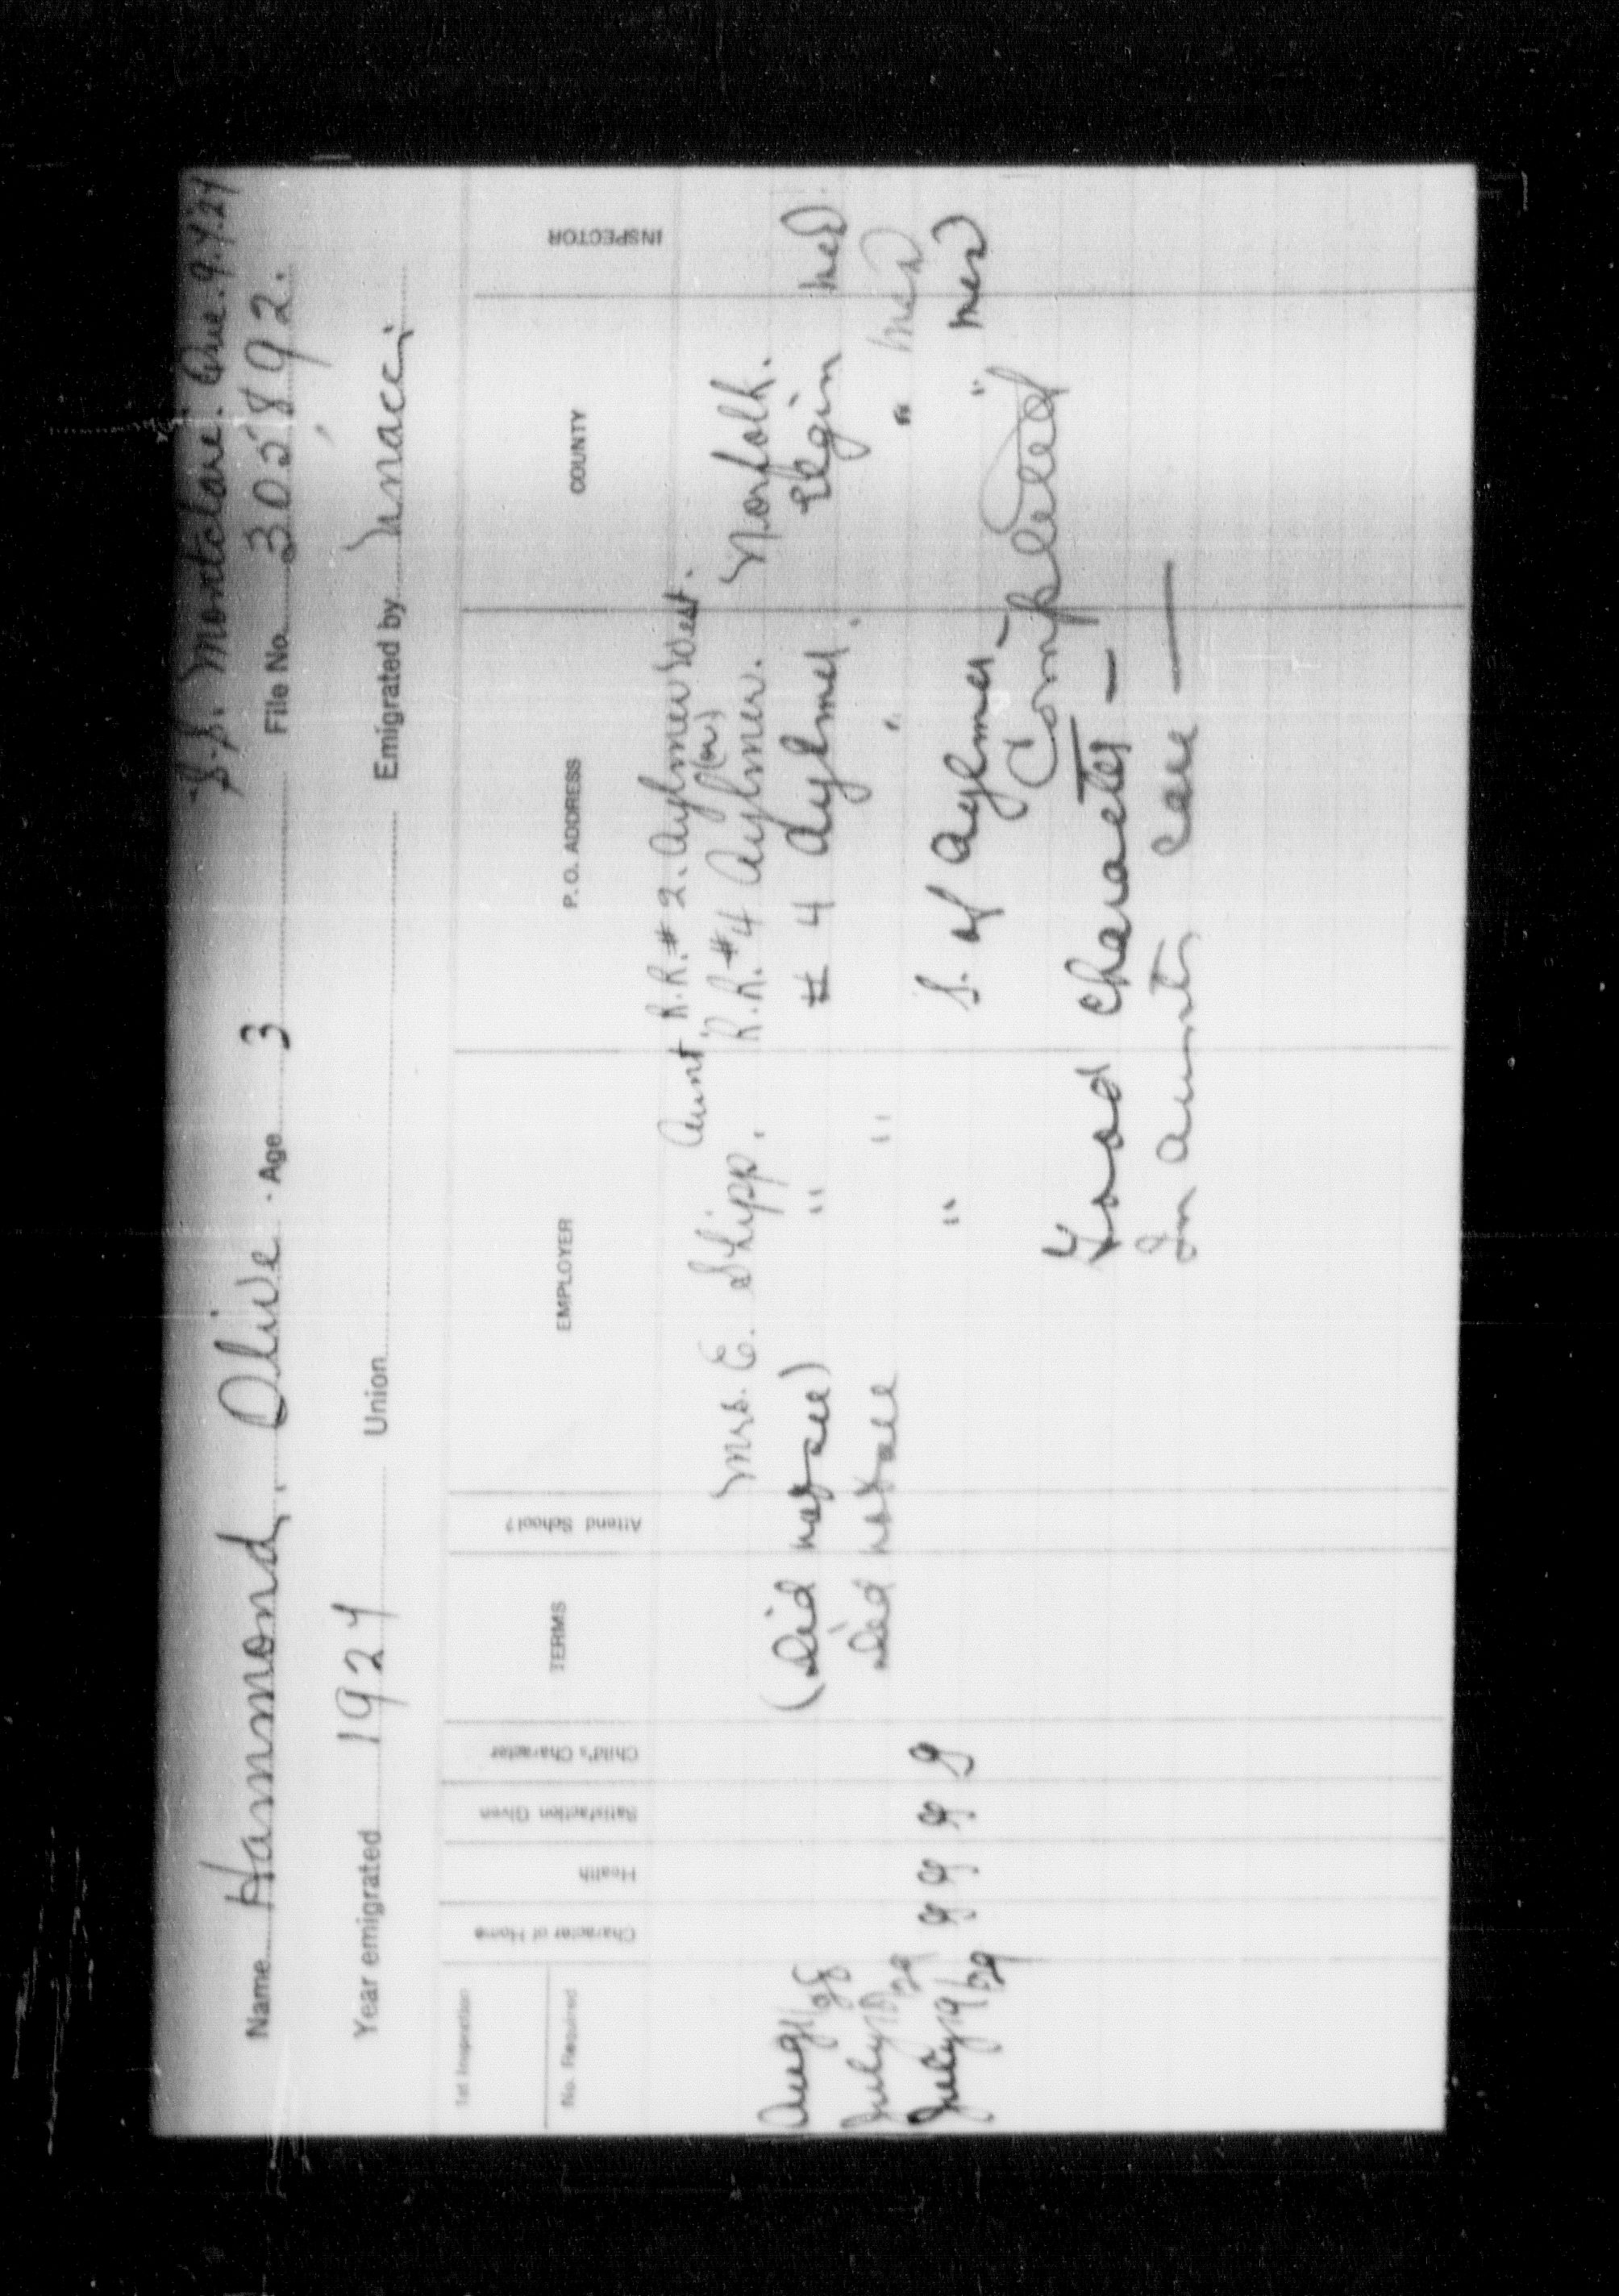 S.S. Montclare. Que. 9.4.24
Name Hammond, Olive. Age 3 File No. 305892.
Year emigrated 1924 Union Emigrated by
1st Inspection
No. Required
Character of Home
Health
Satisfaction Given
Child's Character
TERMS
Attend School?
EMPLOYER
P. O. ADDRESS
COUNTY
INSPECTOR
Aunt R.R.# 2. Aylmer West.
(or)
Mrs. E. Shipp. R.R.#4 Aylmer. Norfolk.
Aug 28 (Did not see) " # 4 Aylmer. Elgin
July 29 Did not see " " "
July 19/29 g g g G " S. of Aylmer - "
Completed
Good Character -
In aunts care -